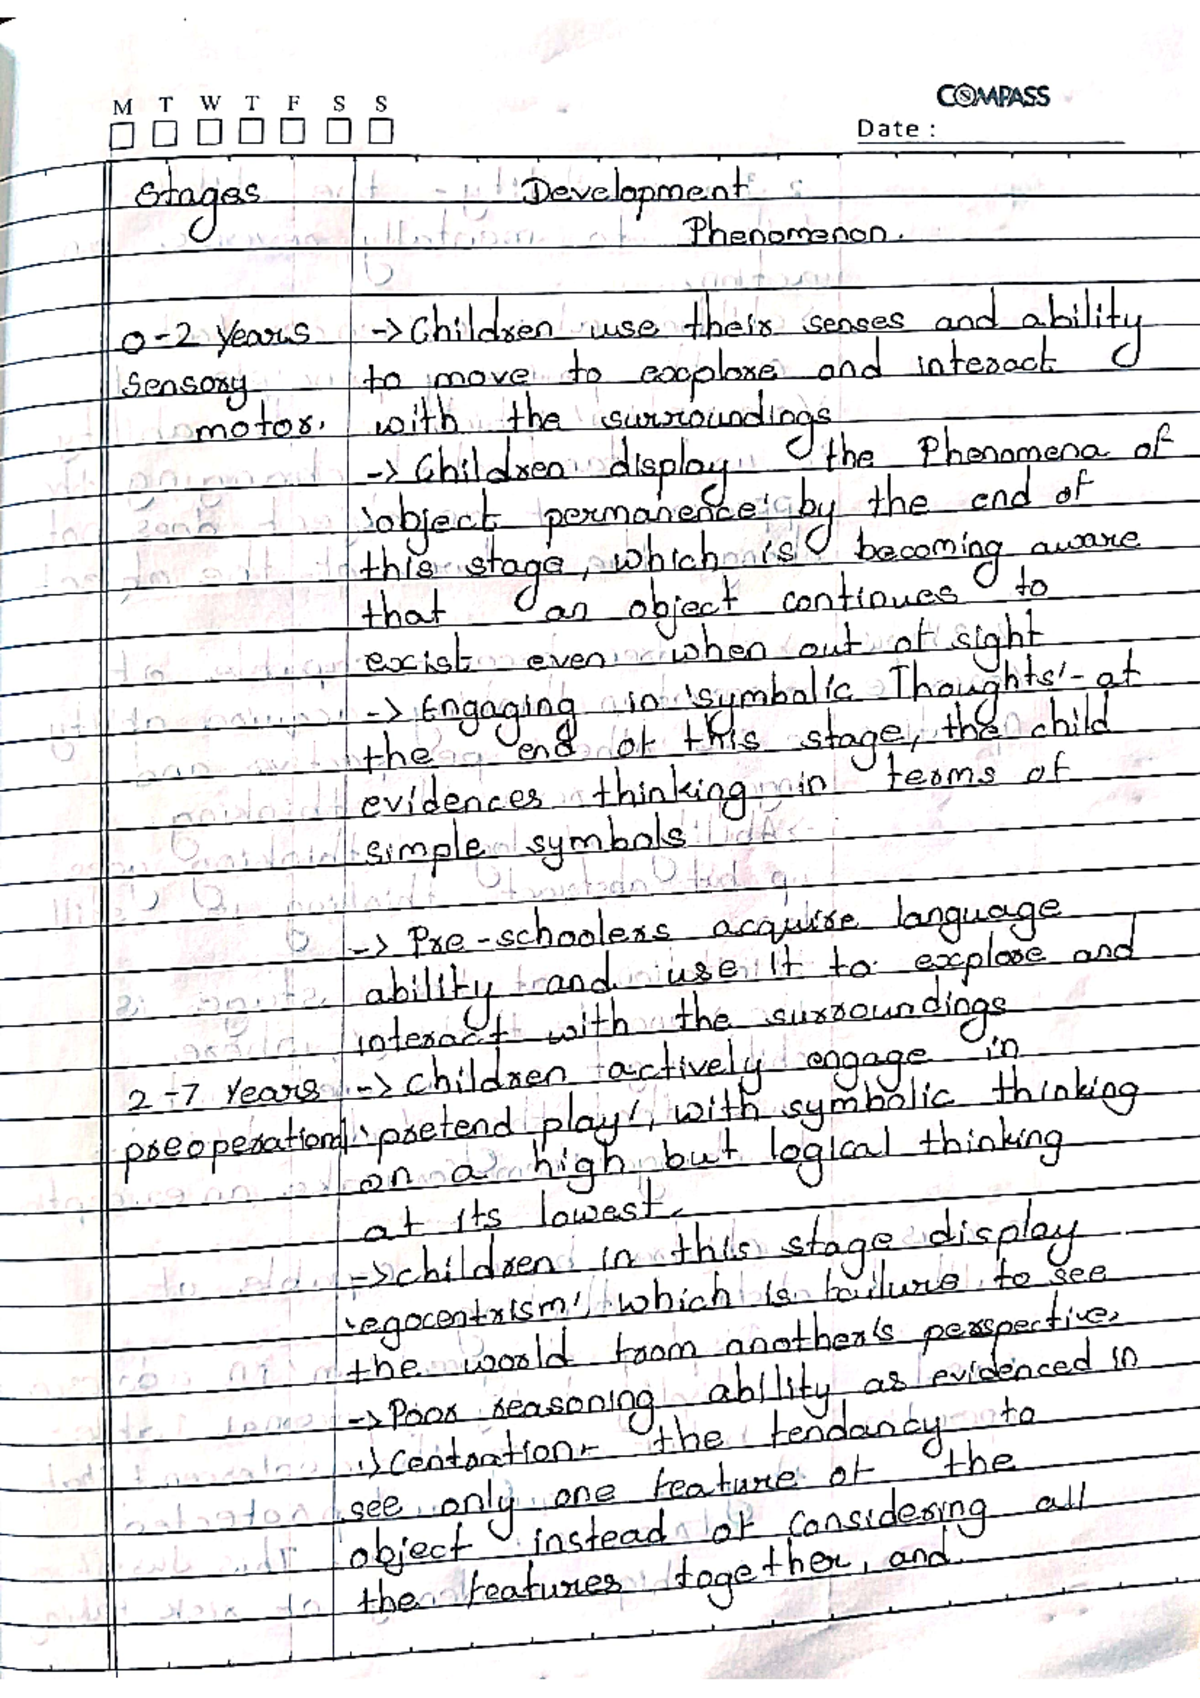 M T W T F S S
COMPASS
Date :
Stages
Development
Phenomenon.
0-2 Years
Sensory
motor.
-> Children use their senses and ability
to move to excplore and interact
with the surroundings
-> Children display the Phenomena of
'object permanence' by the end of
this stage, which is becoming aware
that an object continues to
excist even when out of sight
-> Engaging in 'symbolic Thoughts'- at
the end of this stage, the child
evidences thinking in terms of
simple symbols
-> Pre-schoolers acquire language
ability and use It to explore and
interact with the surroundings
2-7 Years
preoperational
-> children actively engage in
'pretend play', with symbolic thinking
on a high but logical thinking
at its lowest.
-> children in this stage display
'egocentrism', which is failure to see
the world from another's perspective.
-> Poor reasoning ability as evidenced in
i) Centration - the tendancy to
see only one feature of the
object instead of considering all
the features together, and